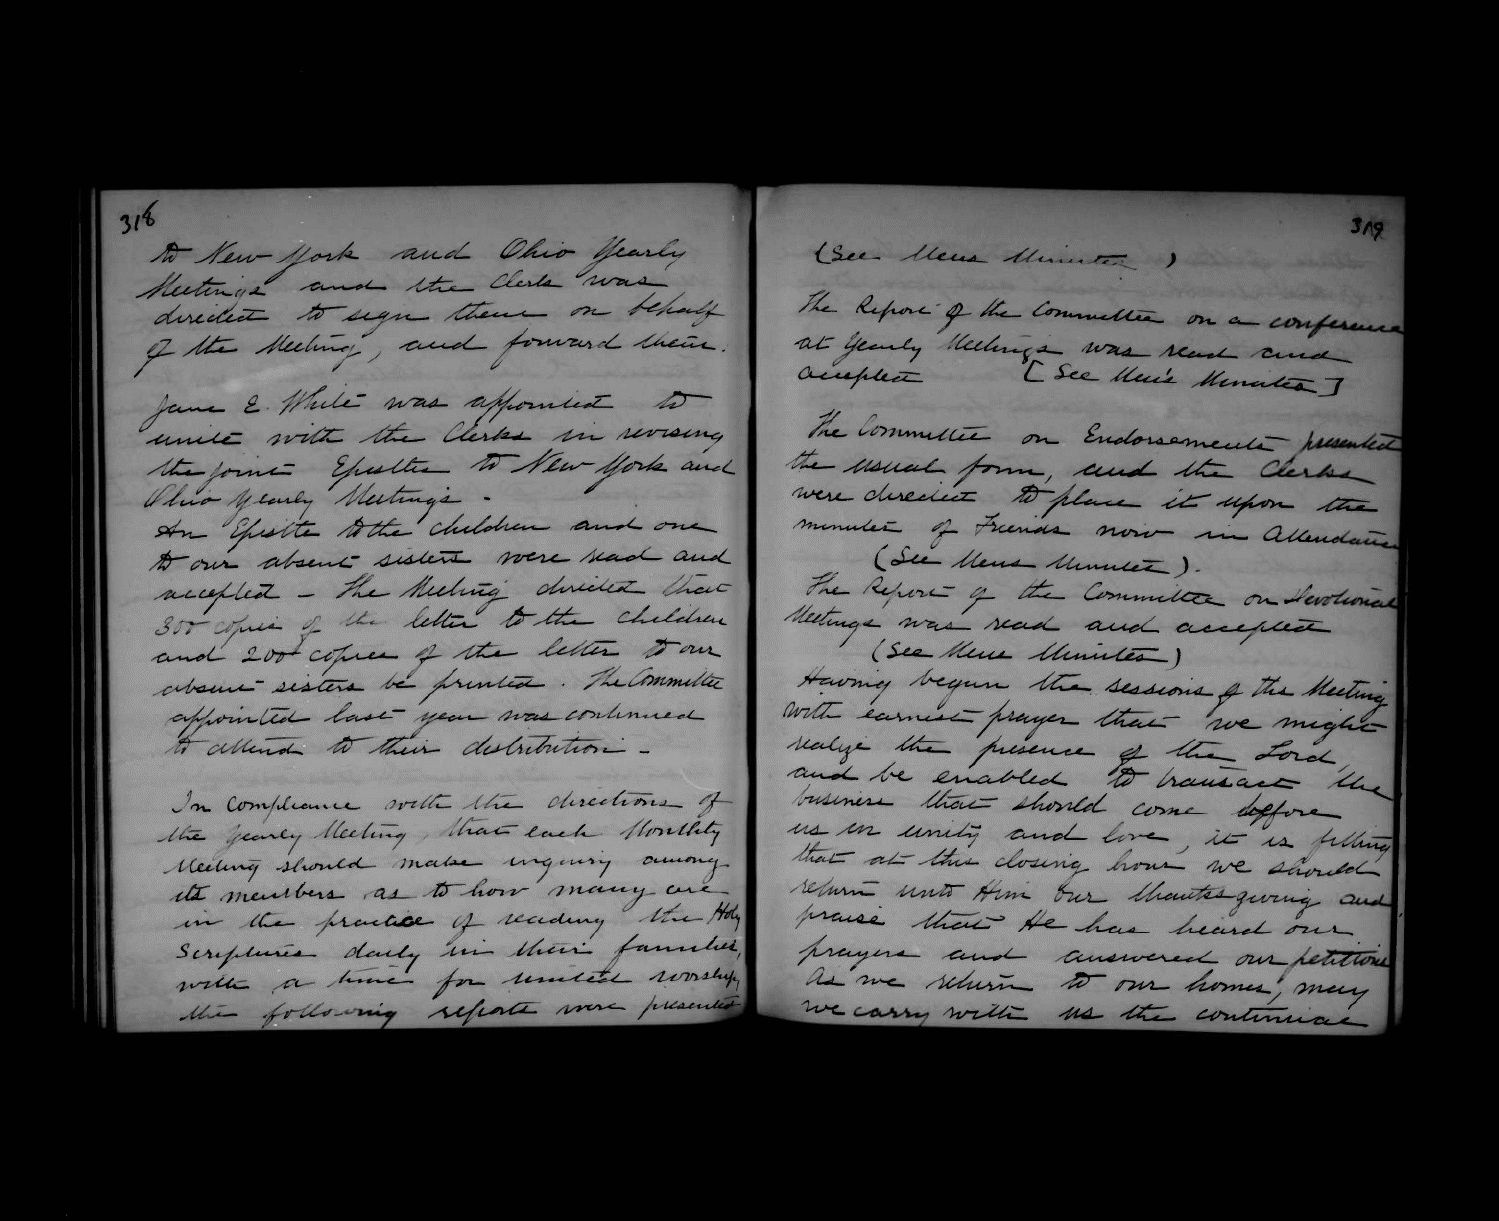 318
to New York and Ohio Yearly
Meetings and the Clerk was
directed to sign them on behalf
of the Meeting, and forward them.
Jane E. White was appointed to
unite with the Clerks in revising
the joint Epistles to New York and
Ohio Yearly Meetings -
An Epistle to the children and one
to our absent sisters were read and
accepted - The Meeting directed that
300 copies of the letter to the children
and 200 copies of the letter to our
absent sisters be printed. The Committee
appointed last year was continued
to attend to their distribution -
In compliance with the directions of
the Yearly Meeting, that each Monthly
Meeting should make inquiry among
its members as to how many are
in the practice of reading the Holy
Scriptures daily in their families,
with a time for united worship,
the following reports were presented
319
(See Mens Minutes )
The Report of the Committee on a conference
at Yearly Meetings was read and
accepted [See Men's Minutes]
The Committee on Endorsements presented
the usual form, and the Clerks
were directed to place it upon the
minutes of Friends now in Attendance
(See Mens Minutes).
The Report of the Committee on Devotional
Meetings was read and accepted
(See Mens Minutes)
Having begun the sessions of this Meeting
with earnest prayer that we might
realize the presence of the Lord,
and be enabled to transact the
business that should come before
us in unity and love, it is fitting
that at this closing hour we should
return unto Him our thanksgiving and
praise that He has heard our
prayers and answered our petitions
As we return to our homes, may
we carry with us the continual